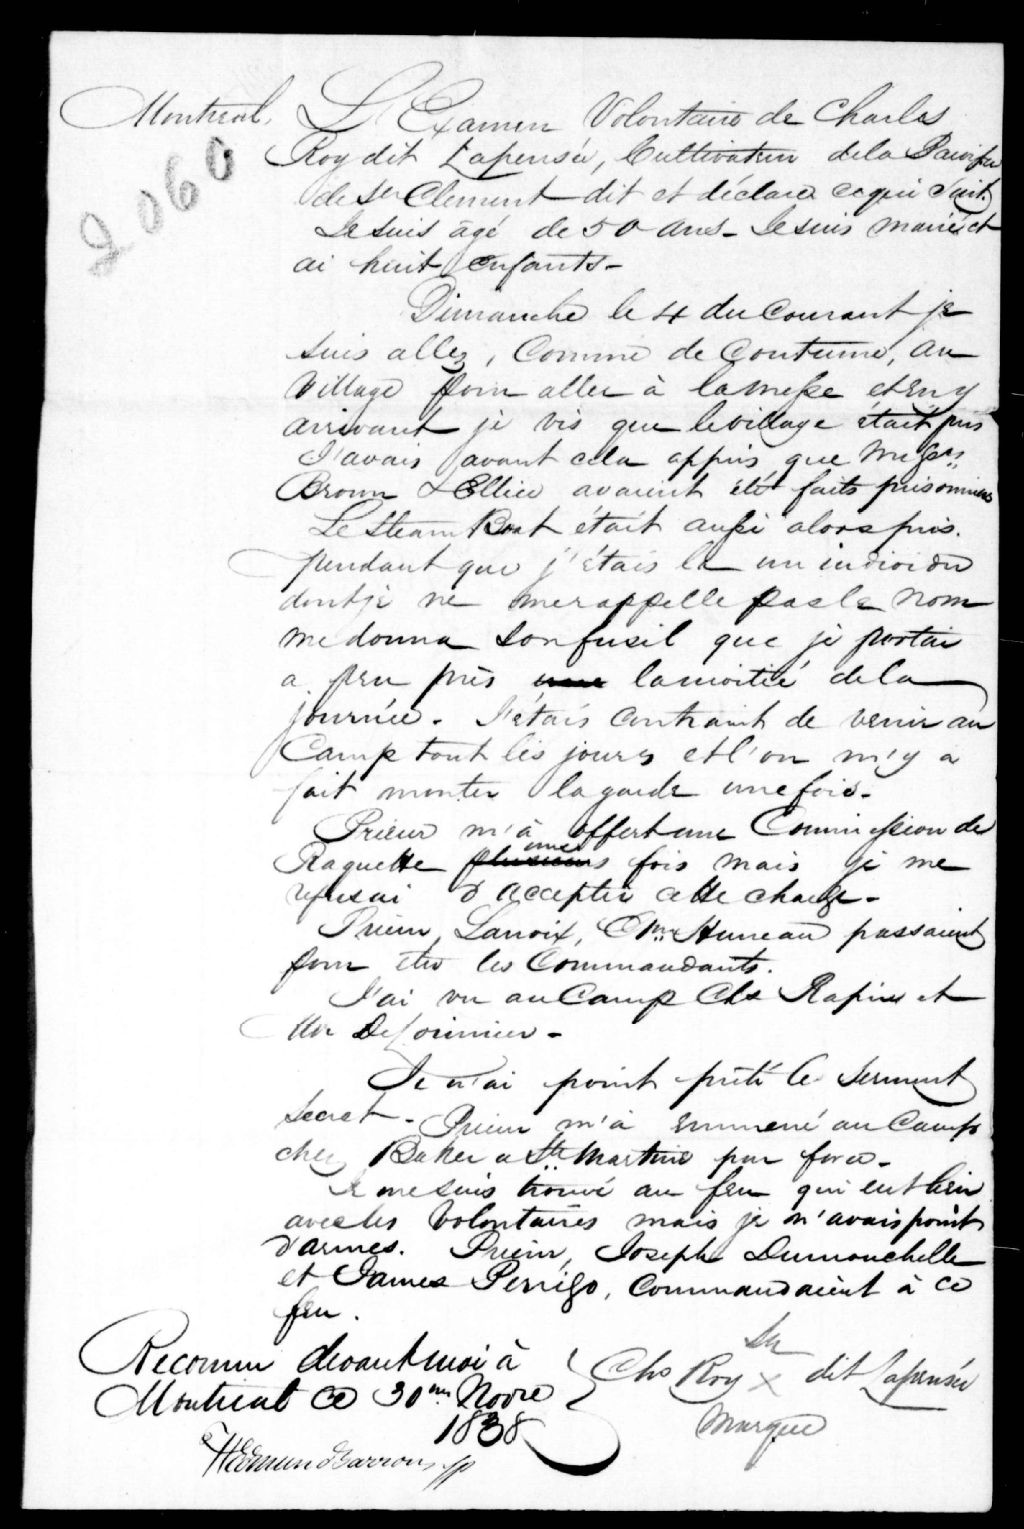 Montreal, L'Examen Volontaire de Charles
Roy dit Lapensée, Cultivateur de la Paroisse
de St Clement dit et déclare ce qui Suit.
Je suis âgé de 50 ans - Je suis marié et
ai huit enfants -
2060
Dimanche le 4 du Courant je
suis allez, Comme de Coutume, au
Village pour aller à la messe et en y
arrivant je vis que le village était pris
J'avais avant cela appris que Messrs
Brown & Ellice avaient été faits prisonniers
Le Steam Boat était aussi alors pris.
pendant que j'étais la un individu
dont je ne me rappelle pas le nom
me donna son fusil que je portai
a peu près la moitié de la
journée. J'étais contraint de venir au
Camp tout les jours et l'on m'y a
fait monter la garde une fois -
Prieur m'à offert une Commission de
Raquette une fois mais je me
refusai d'accepter cette charge -
Prieur, Lanoix, Huneau passaient
pour être les Commandants.
J'ai vu au Camp Chs Rapin et
Mr DeLorimier -
Je n'ai point prêté le serment
secret - Prieur m'à emmené au Camp
chez Baker a Ste Martine par force -
Je me suis trouvé au feu qui eut lieu
avec les Volontaires mais je n'avais point
d'armes. Prieur, Joseph Dumouchelle
et James Perrigo, Commandaient à ce
feu.
Reconnu devant moi à
Montreal ce 30me Novre
1838
H Edmund Barron, JP
Sa
Chs Roy X dit Lapensée
Marque